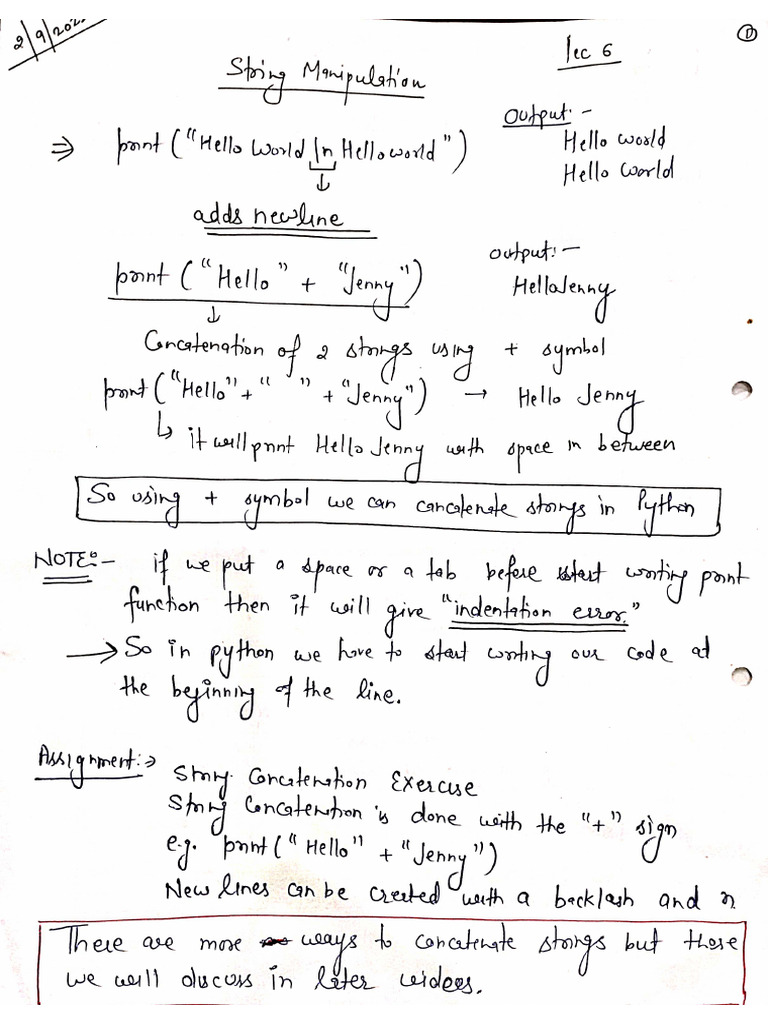 2/9/202
①
lec 6
String Manipulation
Output:-
⇒ print ("Hello World \n Hello world")
Hello world
Hello World
↓
adds newline
output:-
print ("Hello" + "Jenny")
HelloJenny
↓
Concatenation of 2 strings using + symbol
print ("Hello" + " " + "Jenny") → Hello Jenny
↳ it will print Hello Jenny with space in between
So using + symbol we can concatenate strings in Python
NOTE:- if we put a space or a tab before start writing print
function then it will give "indentation error."
→ So in python we have to start writing our code at
the beginning of the line.
Assignment:→
String Concatenation Exercise
String Concatention is done with the "+" sign
e.g. print ("Hello" + "Jenny")
New lines can be created with a backlash and n
There are more ways to concatenate strings but those
we will discuss in later videos.